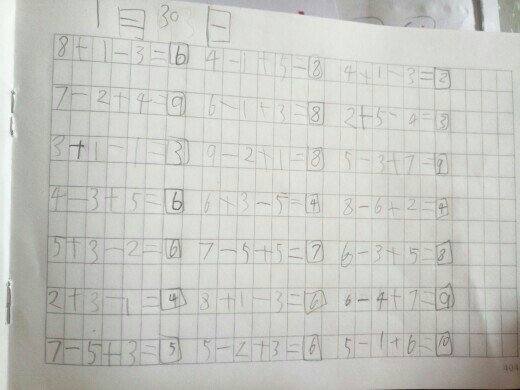 1 = 30 -
8+1-3=6 4-1+5=8 4+1-3=2
7-2+4=9 6-1+3=8 2+5-4=3
3+1-1=3 9-2+1=8 5-3+7=9
4-3+5=6 6+3-5=4 8-6+2=4
5+3-2=6 7-5+5=7 6-3+5=8
2+3-1=4 8+1-3=6 6-4+7=9
7-5+3=5 5-2+3=6 5-1+6=10